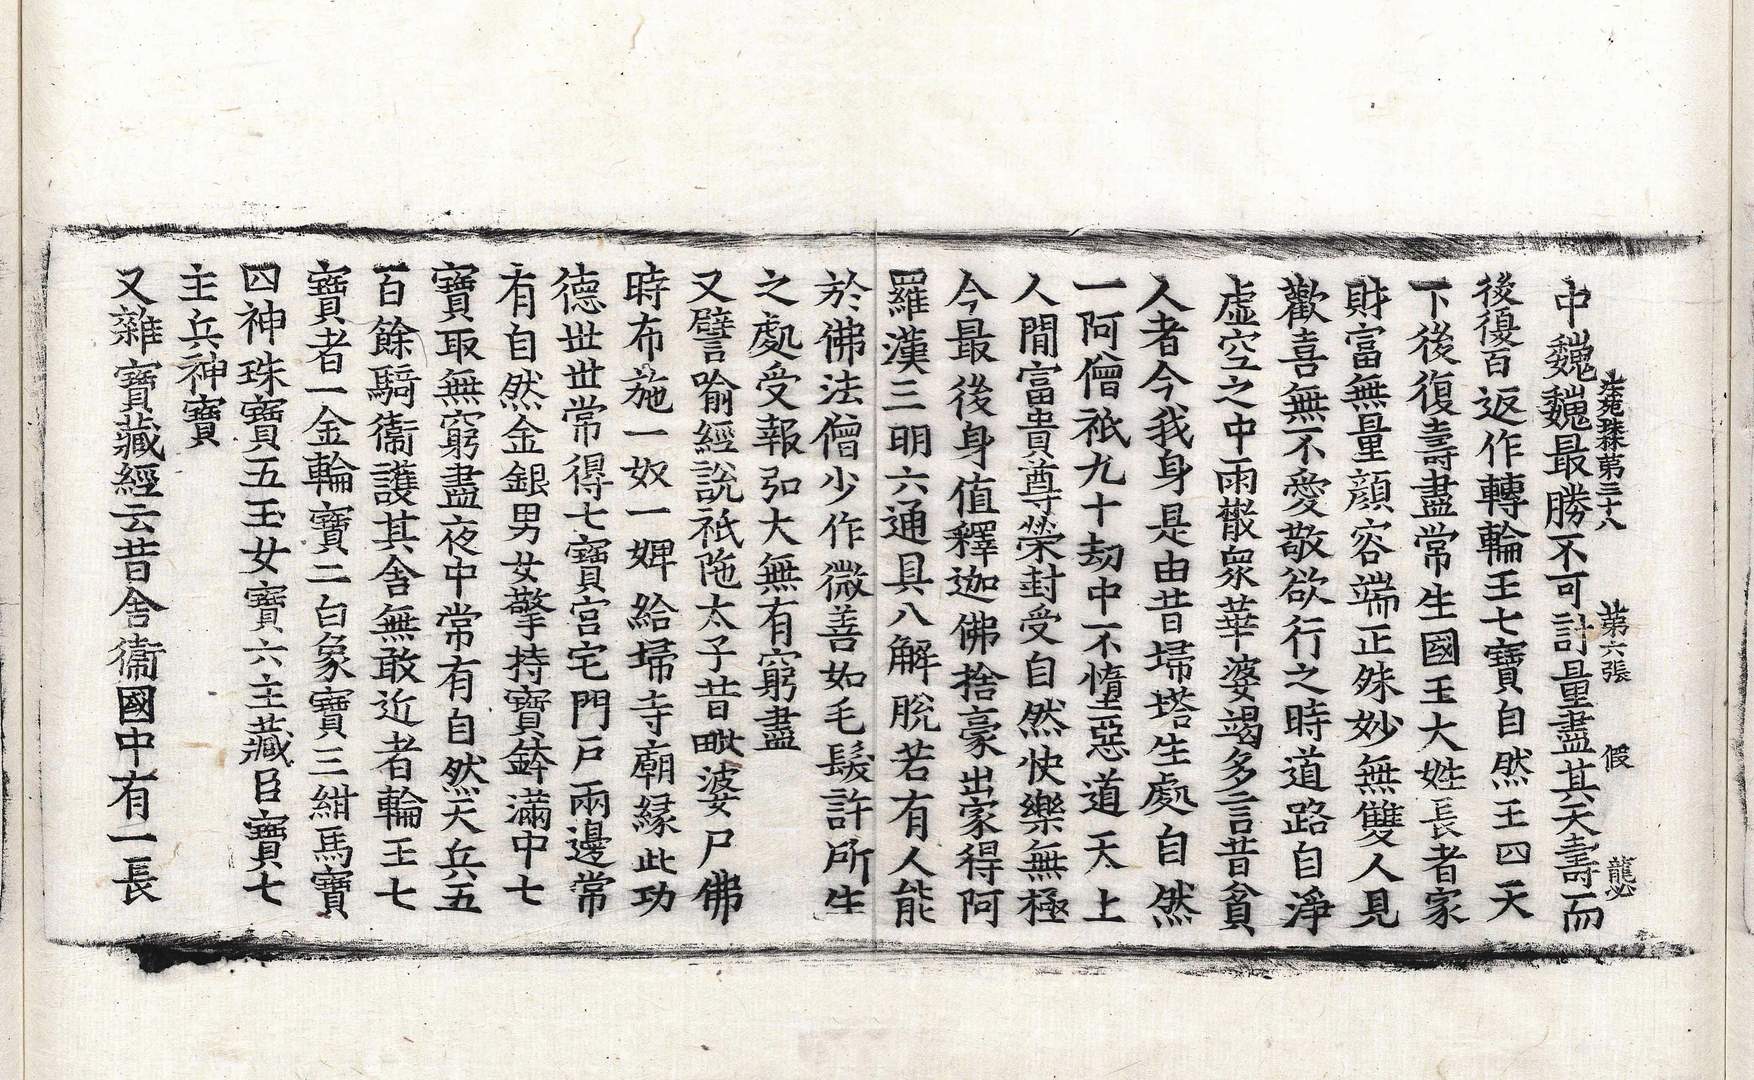 法苑珠林第三十八 第六張 假 龍必
中巍巍最勝不可計量盡其天壽而
後復百返作轉輪王七寶自然王四天
下後復壽盡常生國王大姓長者家
財富無量顏容端正殊妙無雙人見
歡喜無不愛敬欲行之時道路自淨
虛空之中雨散衆華婆竭多言昔貧
人者今我身是由昔埽塔生處自然
一阿僧祇九十劫中不墮惡道天上
人間富貴尊榮封受自然快樂無極
今最後身值釋迦佛捨豪出家得阿
羅漢三明六通具八解脫若有人能
於佛法僧少作微善如毛髮許所生
之處受報弘大無有窮盡
又譬喻經說祇陁太子昔毗婆尸佛
時布施一奴一婢給埽寺廟緣此功
德世世常得七寶宮宅門戶兩邊常
有自然金銀男女擎持寶鉢滿中七
寶取無窮盡夜中常有自然天兵五
百餘騎衞護其舍無敢近者輪王七
寶者一金輪寶二白象寶三紺馬寶
四神珠寶五玉女寶六主藏臣寶七
主兵神寶
又雜寶藏經云昔舍衞國中有一長